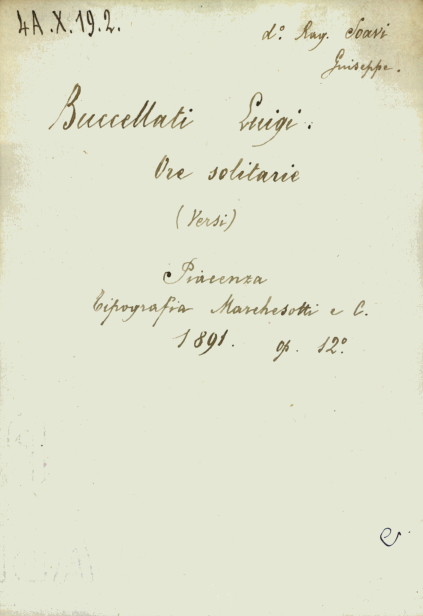 4A.X.19.2.
d.° Rag. Soavi
Giuseppe.
Buccellati Luigi.
Ore solitarie
(Versi)
Piacenza
Tipografia Marchesotti e C.
1891. op. 12°.